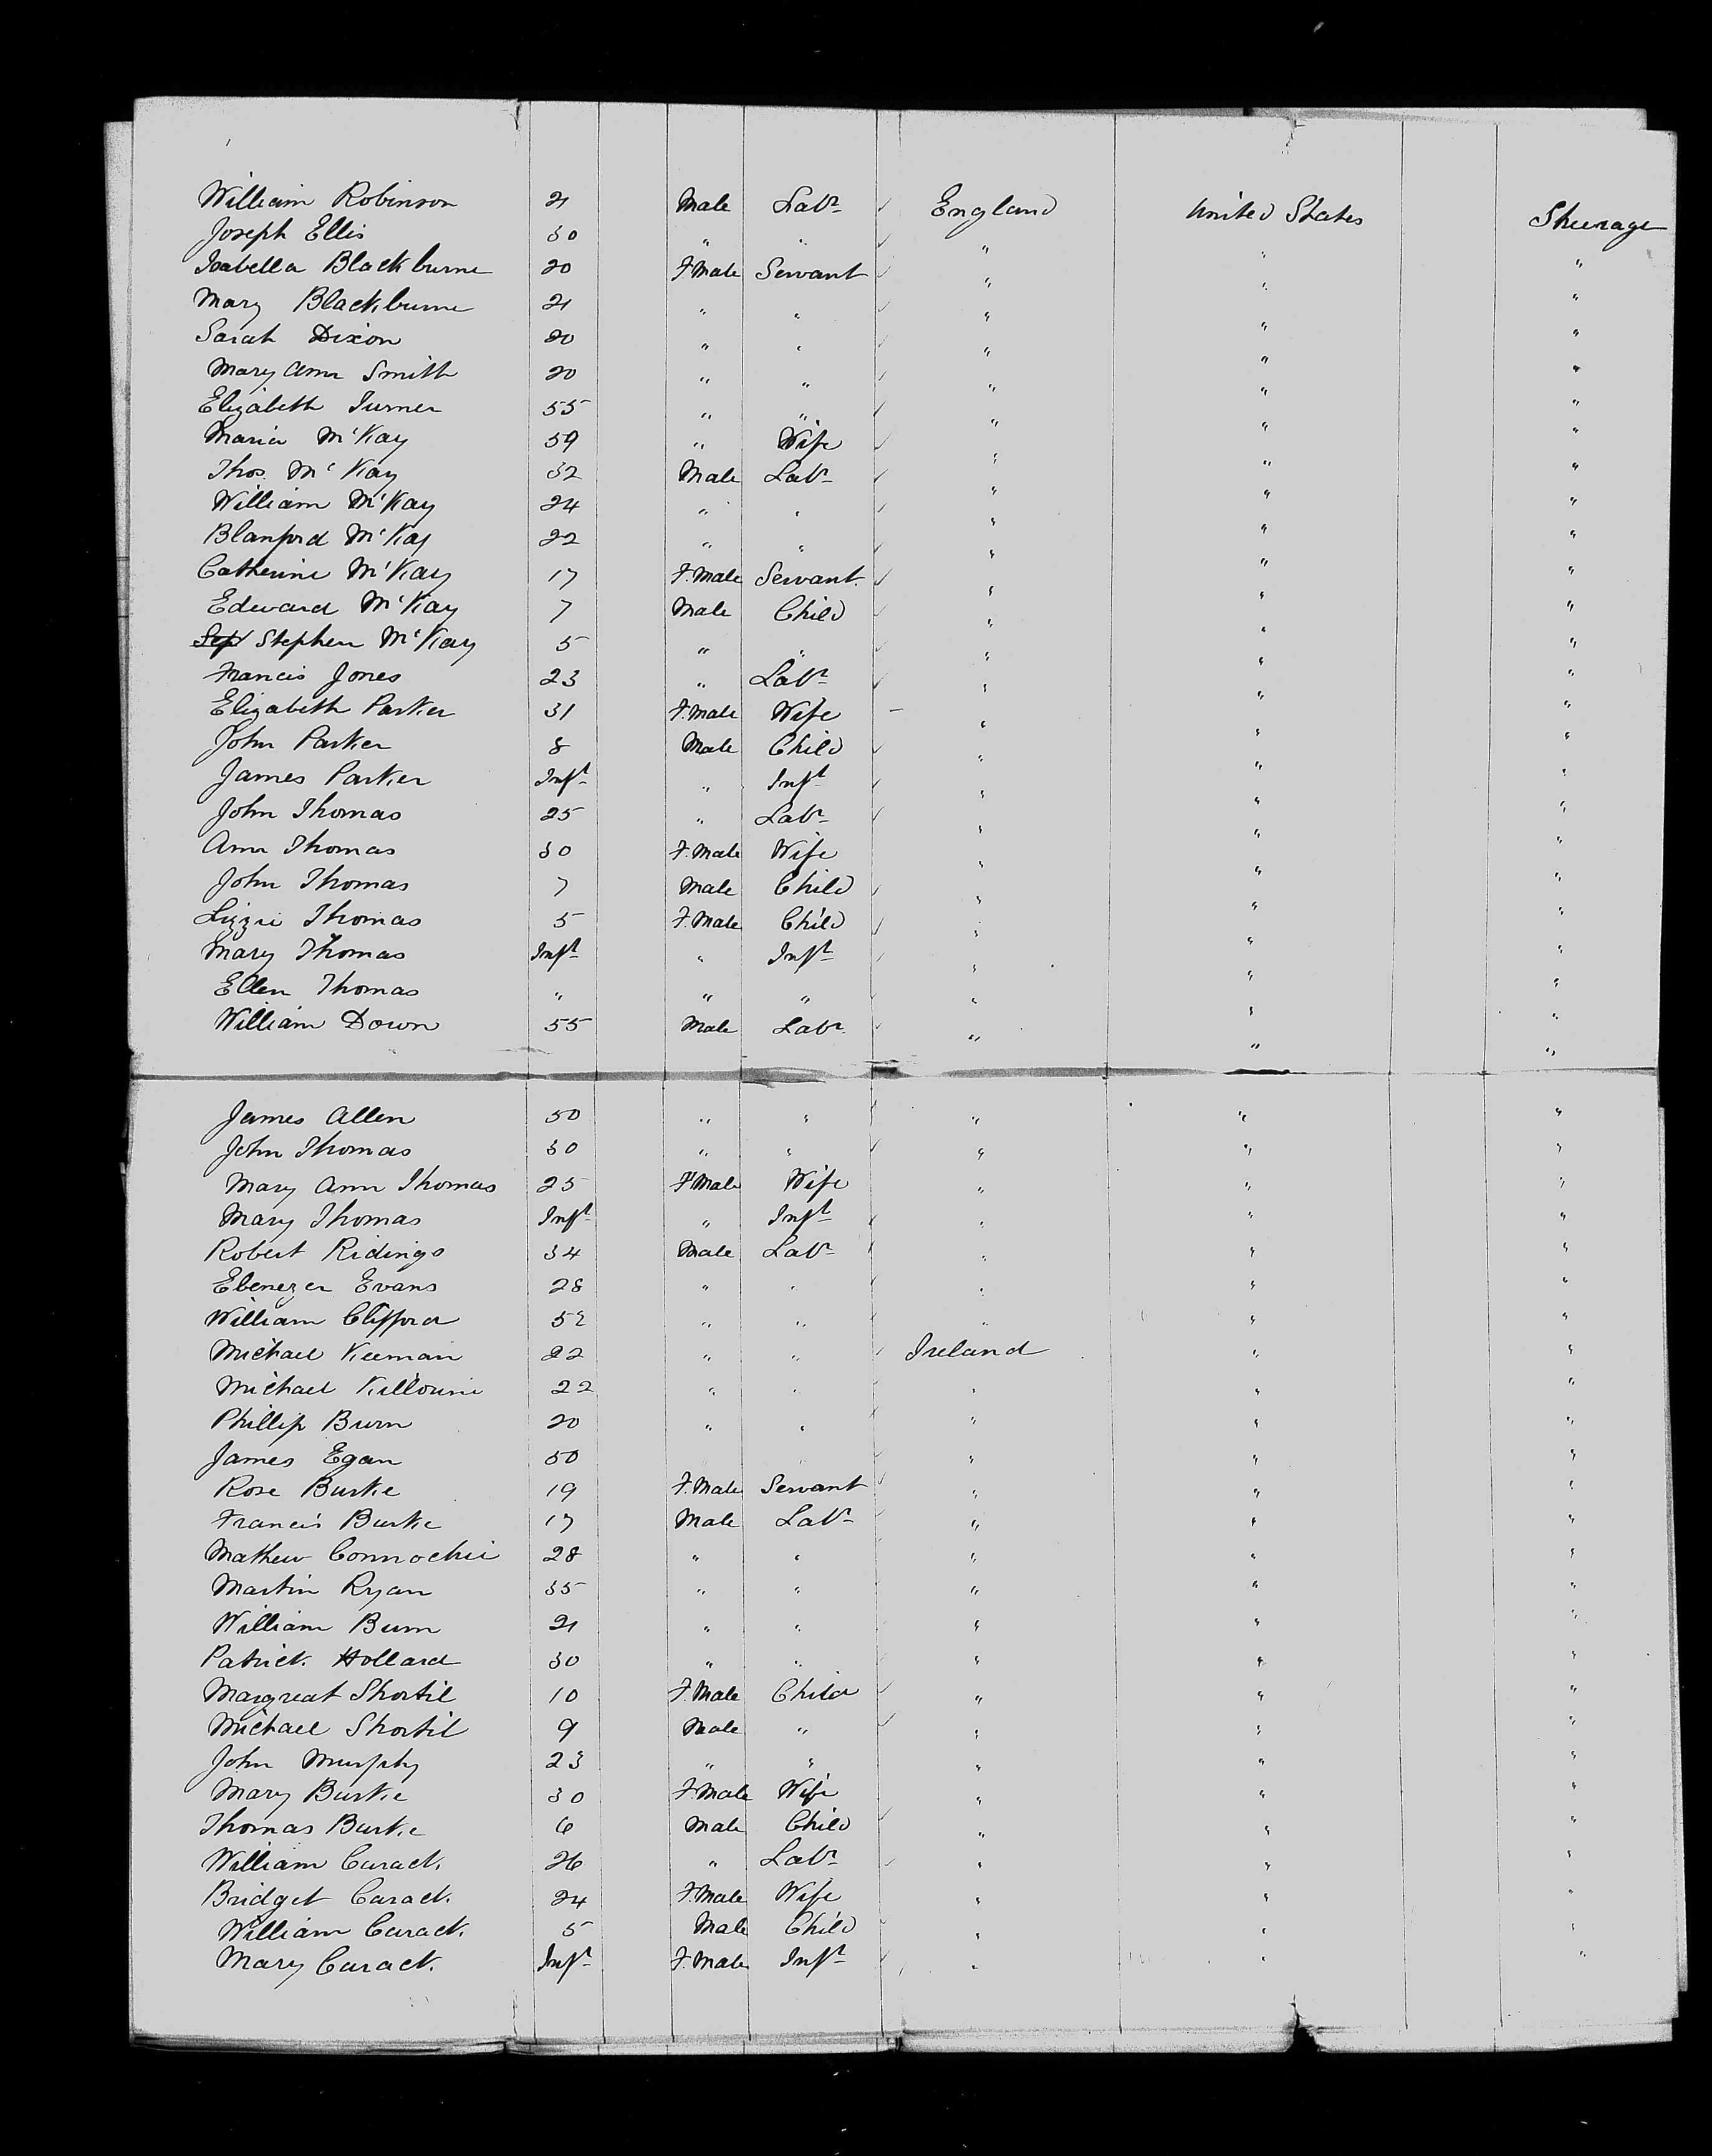 William Robinson 21 Male Labr England United States Steerage
Joseph Ellis 30 " " " " "
Isabella Blackburne 20 F.Male Servant " " "
Mary Blackburne 21 " " " " "
Sarah Dixon 20 " " " " "
Mary Ann Smith 20 " " " " "
Elizabeth Turner 55 " " " " "
Maria McKay 59 " Wife " " "
Thos. McKay 32 Male Labr " " "
William McKay 24 " " " " "
Blanford McKay 22 " " " " "
Catherine McKay 17 F.Male Servant " " "
Edward McKay 7 Male Child " " "
Stephen McKay 5 " " " " "
Francis Jones 23 " Labr " " "
Elizabeth Parker 31 F.Male Wife " " "
John Parker 8 Male Child " " "
James Parker Inft " Inft " " "
John Thomas 25 " Labr " " "
Ann Thomas 30 F.Male Wife " " "
John Thomas 7 Male Child " " "
Lizzie Thomas 5 F.Male Child " " "
Mary Thomas Inft " Inft " " "
Ellen Thomas " " " " " "
William Down 55 Male Labr " " "
James Allen 50 " " " " "
John Thomas 30 " " " " "
Mary Ann Thomas 25 F.Male Wife " " "
Mary Thomas Inft " Inft " " "
Robert Ridings 34 Male Labr " " "
Ebenezer Evans 28 " " " " "
William Clifford 52 " " " " "
Michael Keeman 22 " " Ireland " "
Michael 22 " " " " "
Phillip Burn 20 " " " " "
James Egan 50 " " "
Rose Burke 19 F.Male Servant " " "
Francis Burke 17 Male Labr " " "
Mathew Connochie 28 " " " " "
Martin Ryan 35 " " " " "
William Burn 21 " " " " "
Patrick Hollard 30 " " " " "
Margreat Shortil 10 F.Male Child " " "
Michael Shortil 9 Male " " " "
John Murphy 23 " " " " "
Mary Burke 30 F.Male Wife " " "
Thomas Burke 6 Male Child " " "
William Carack 26 " Labr " " "
Bridget Carack 24 F.Male Wife " " "
William Carack 5 Male Child " " "
Mary Carack Inft F.Male Inft " " "